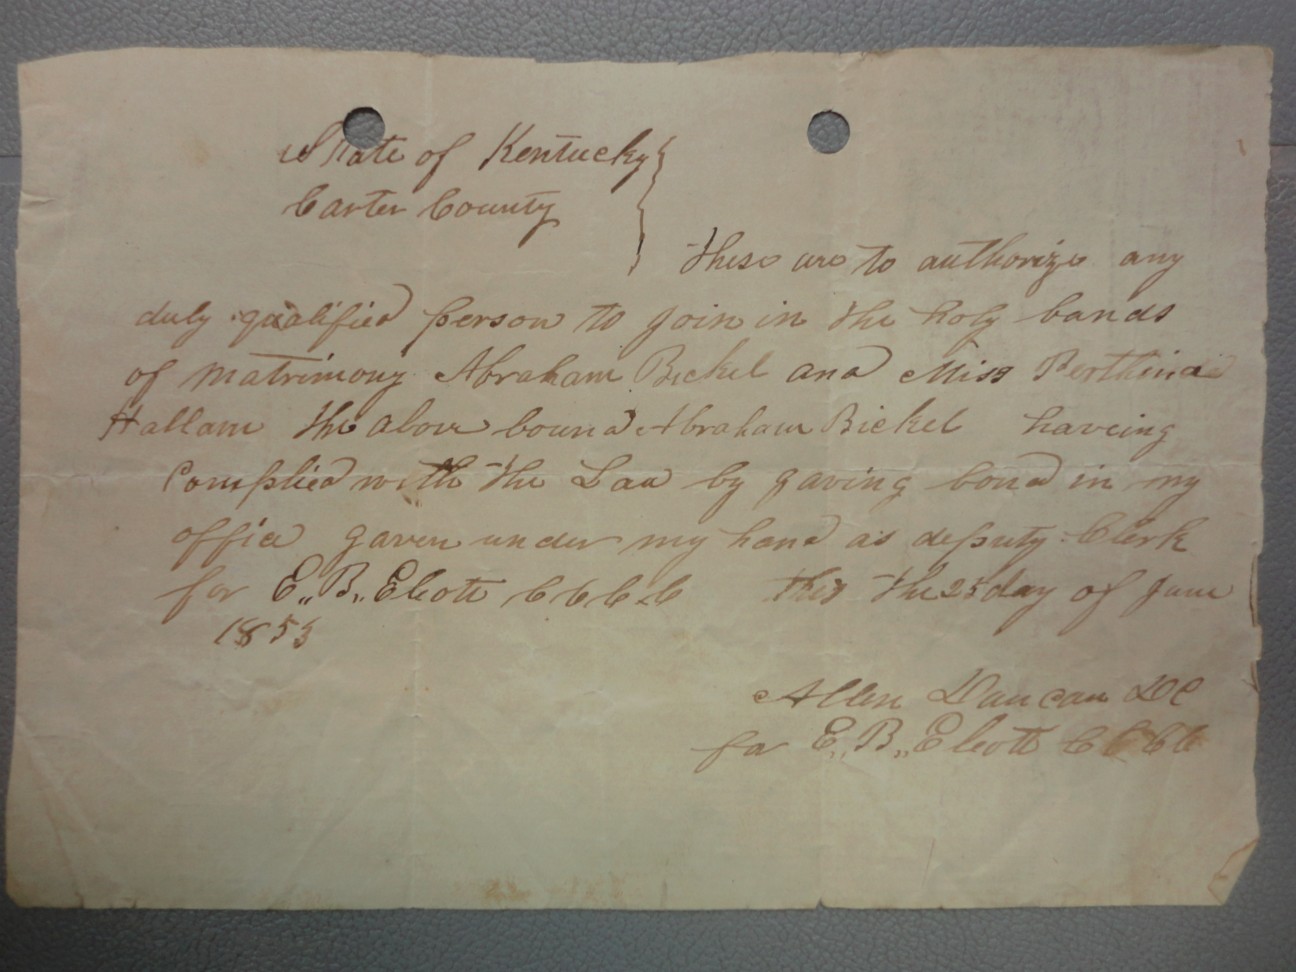 State of Kentucky
Carter County
These are to authorize any
duly qualified person to join in the holy bands
of matrimony Abraham Bickel and Miss Perthina
Hallam the above bound Abraham Bickel having
Complied with the Law by gaving bond in my
office gaven under my hand as deputy Clerk
for E,, B,, Eliott C C C C this the 25 day of June
1853
Allen Duncan DC
for E,, B,, Eliott C C C C